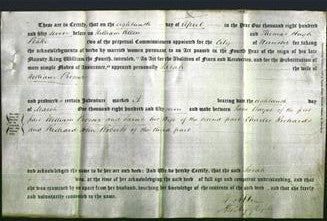 These are to Certify, that on the eighteenth day of April in the Year One thousand eight hundred
and fifty seven before us William Allen and Thomas
two of the perpetual Commissioners appointed for the City of Worcester for taking
the acknowledgments of deeds by married women pursuant to an Act passed in the Fourth Year of the reign of his late
Majesty King William the Fourth, intituled, "An Act for the Abolition of Fines and Recoveries, and for the Substitution of
more Simple Modes of Assurance," appeared personally Sarah the wife of
William
and produced a certain Indenture marked A bearing date the eighteenth day
of March One thousand eight hundred and fifty seven and made between of the first
part William and Sarah his Wife of the second part Charles Richards
and Richard John of the third part
and acknowledged the same to be her act and deed: And We do hereby Certify, that the said Sarah
was, at the time of her acknowledging the said deed of full age and competent understanding, and that
she was examined by us apart from her husband, touching her knowledge of the contents of the said deed and that she freely
and voluntarily consented to the same.